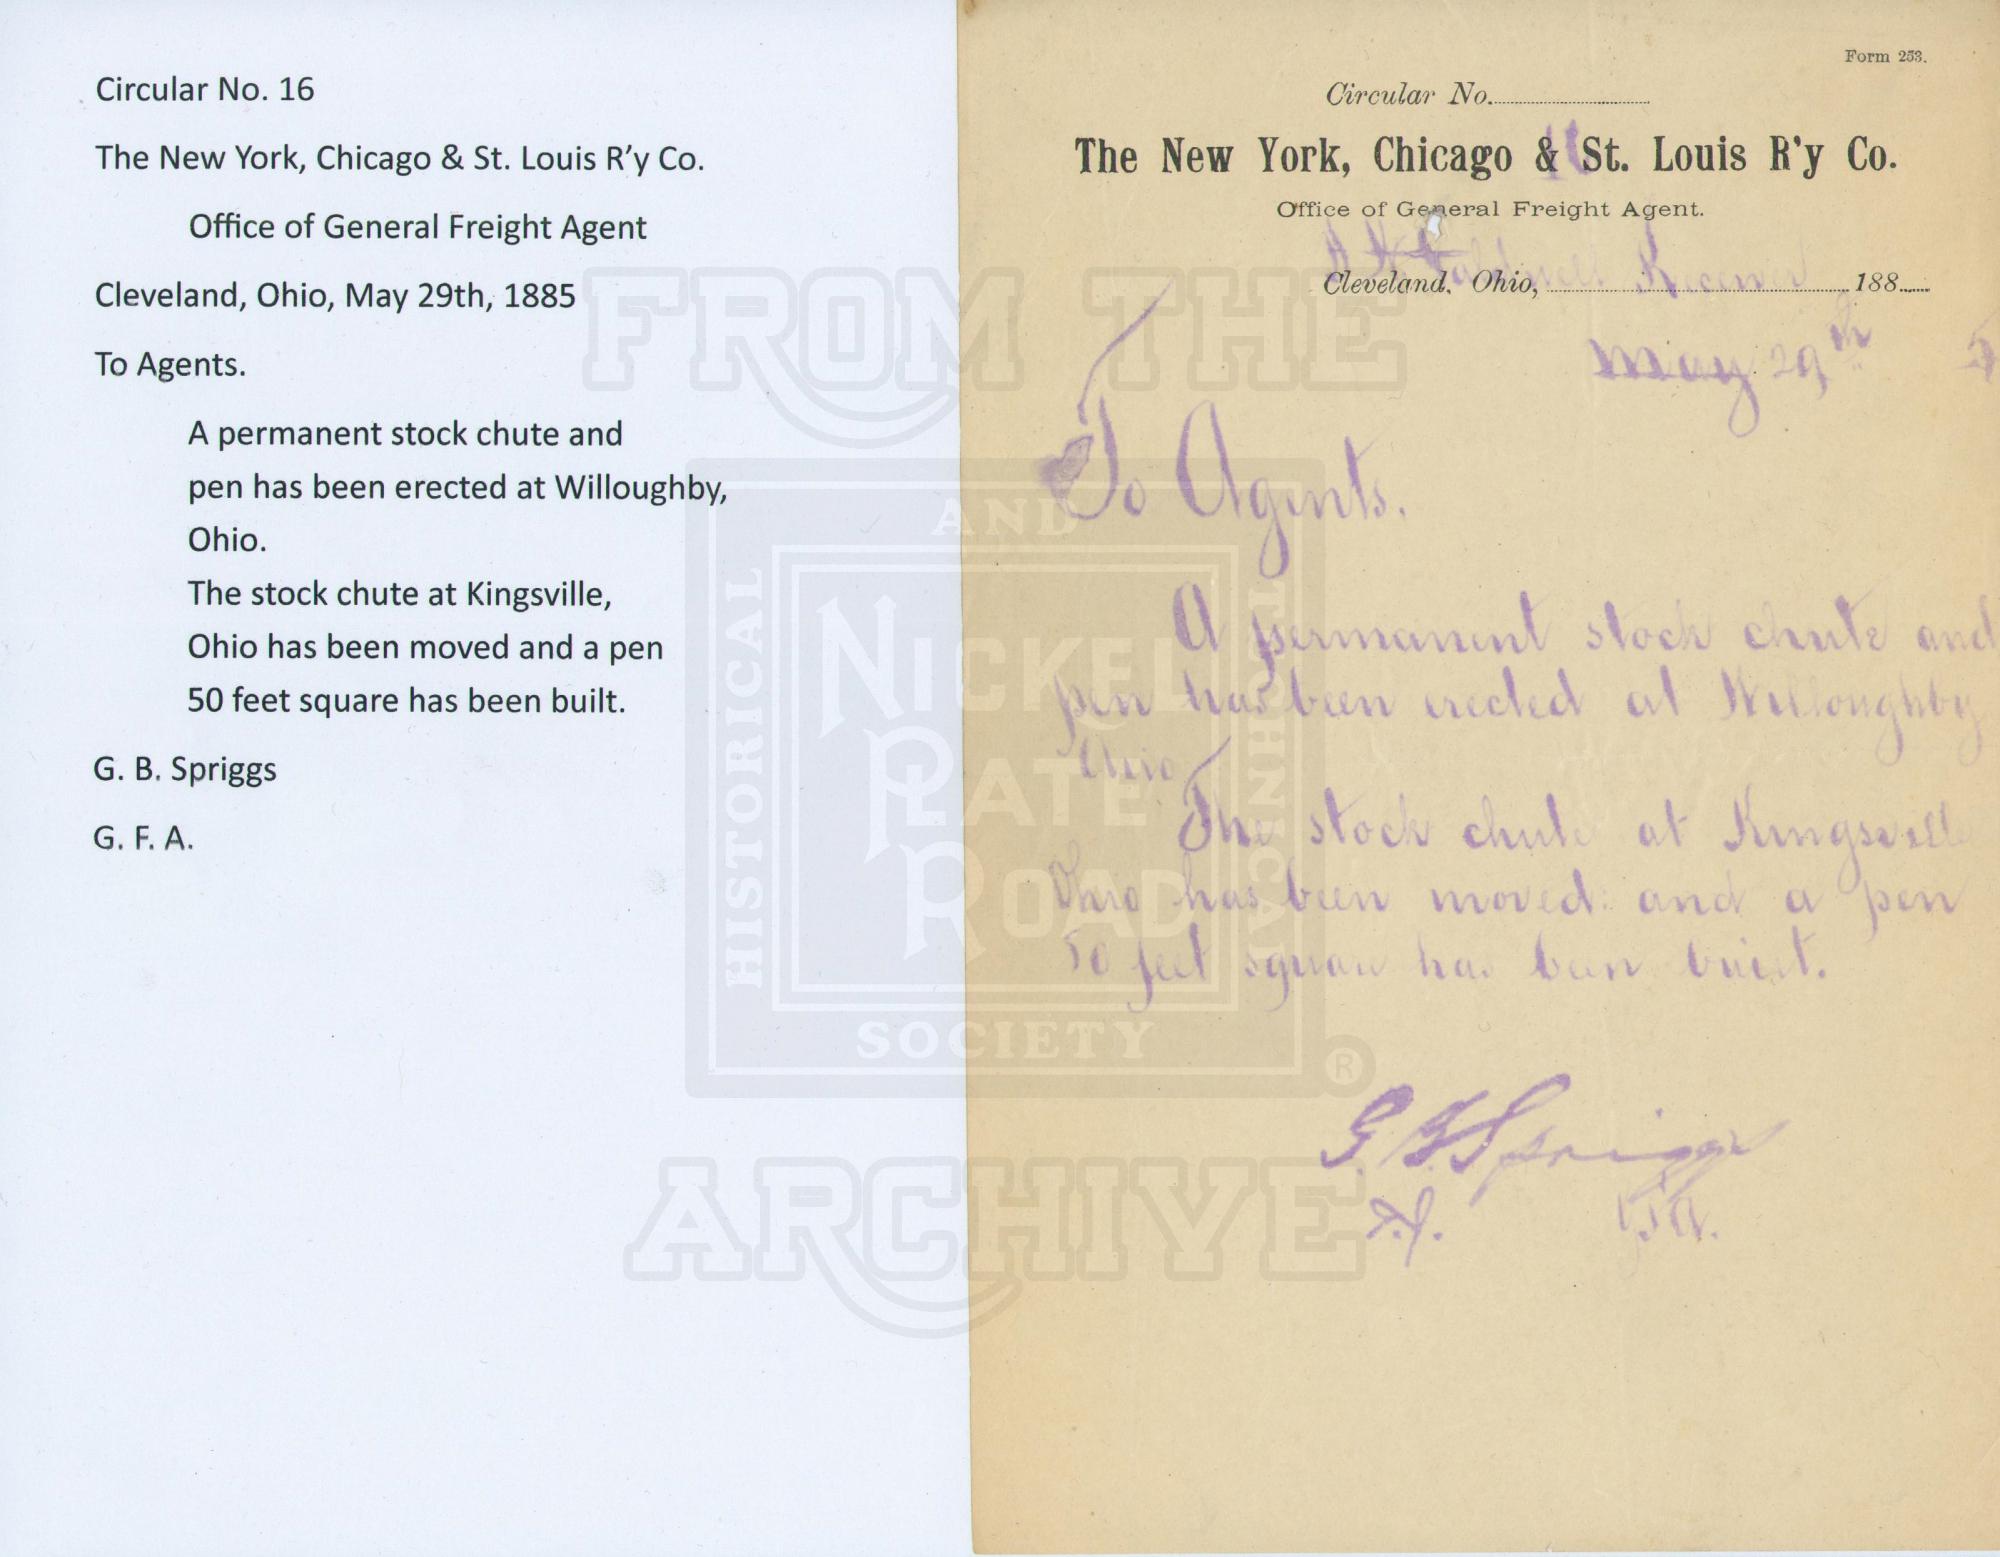 Circular No. 16
The New York, Chicago & St. Louis R’y Co.
Office of General Freight Agent
Cleveland, Ohio, May 29th, 1885
To Agents.
A permanent stock chute and
pen has been erected at Willoughby,
Ohio.
The stock chute at Kingsville,
Ohio has been moved and a pen
50 feet square has been built.
G. B. Spriggs
G. F. A.
Form 253.
Circular No.
16
The New York, Chicago & St. Louis R'y Co.
Office of General Freight Agent.
Caldwell Receiver
Cleveland, Ohio, 188
May 29th 5
To Agents.
A permanent stock chute and
pen has been erected at Willoughby
Ohio
The stock chute at Kingsville
Ohio has been moved and a pen
50 feet square has been built.
G. B. Spriggs
G.F.A.
FROM THE
NICKEL PLATE ROAD
HISTORICAL AND TECHNICAL SOCIETY
®
ARCHIVE